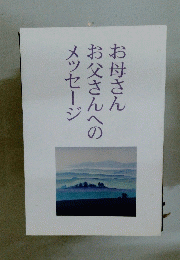 お母さん
お父さんへの
メッセージ